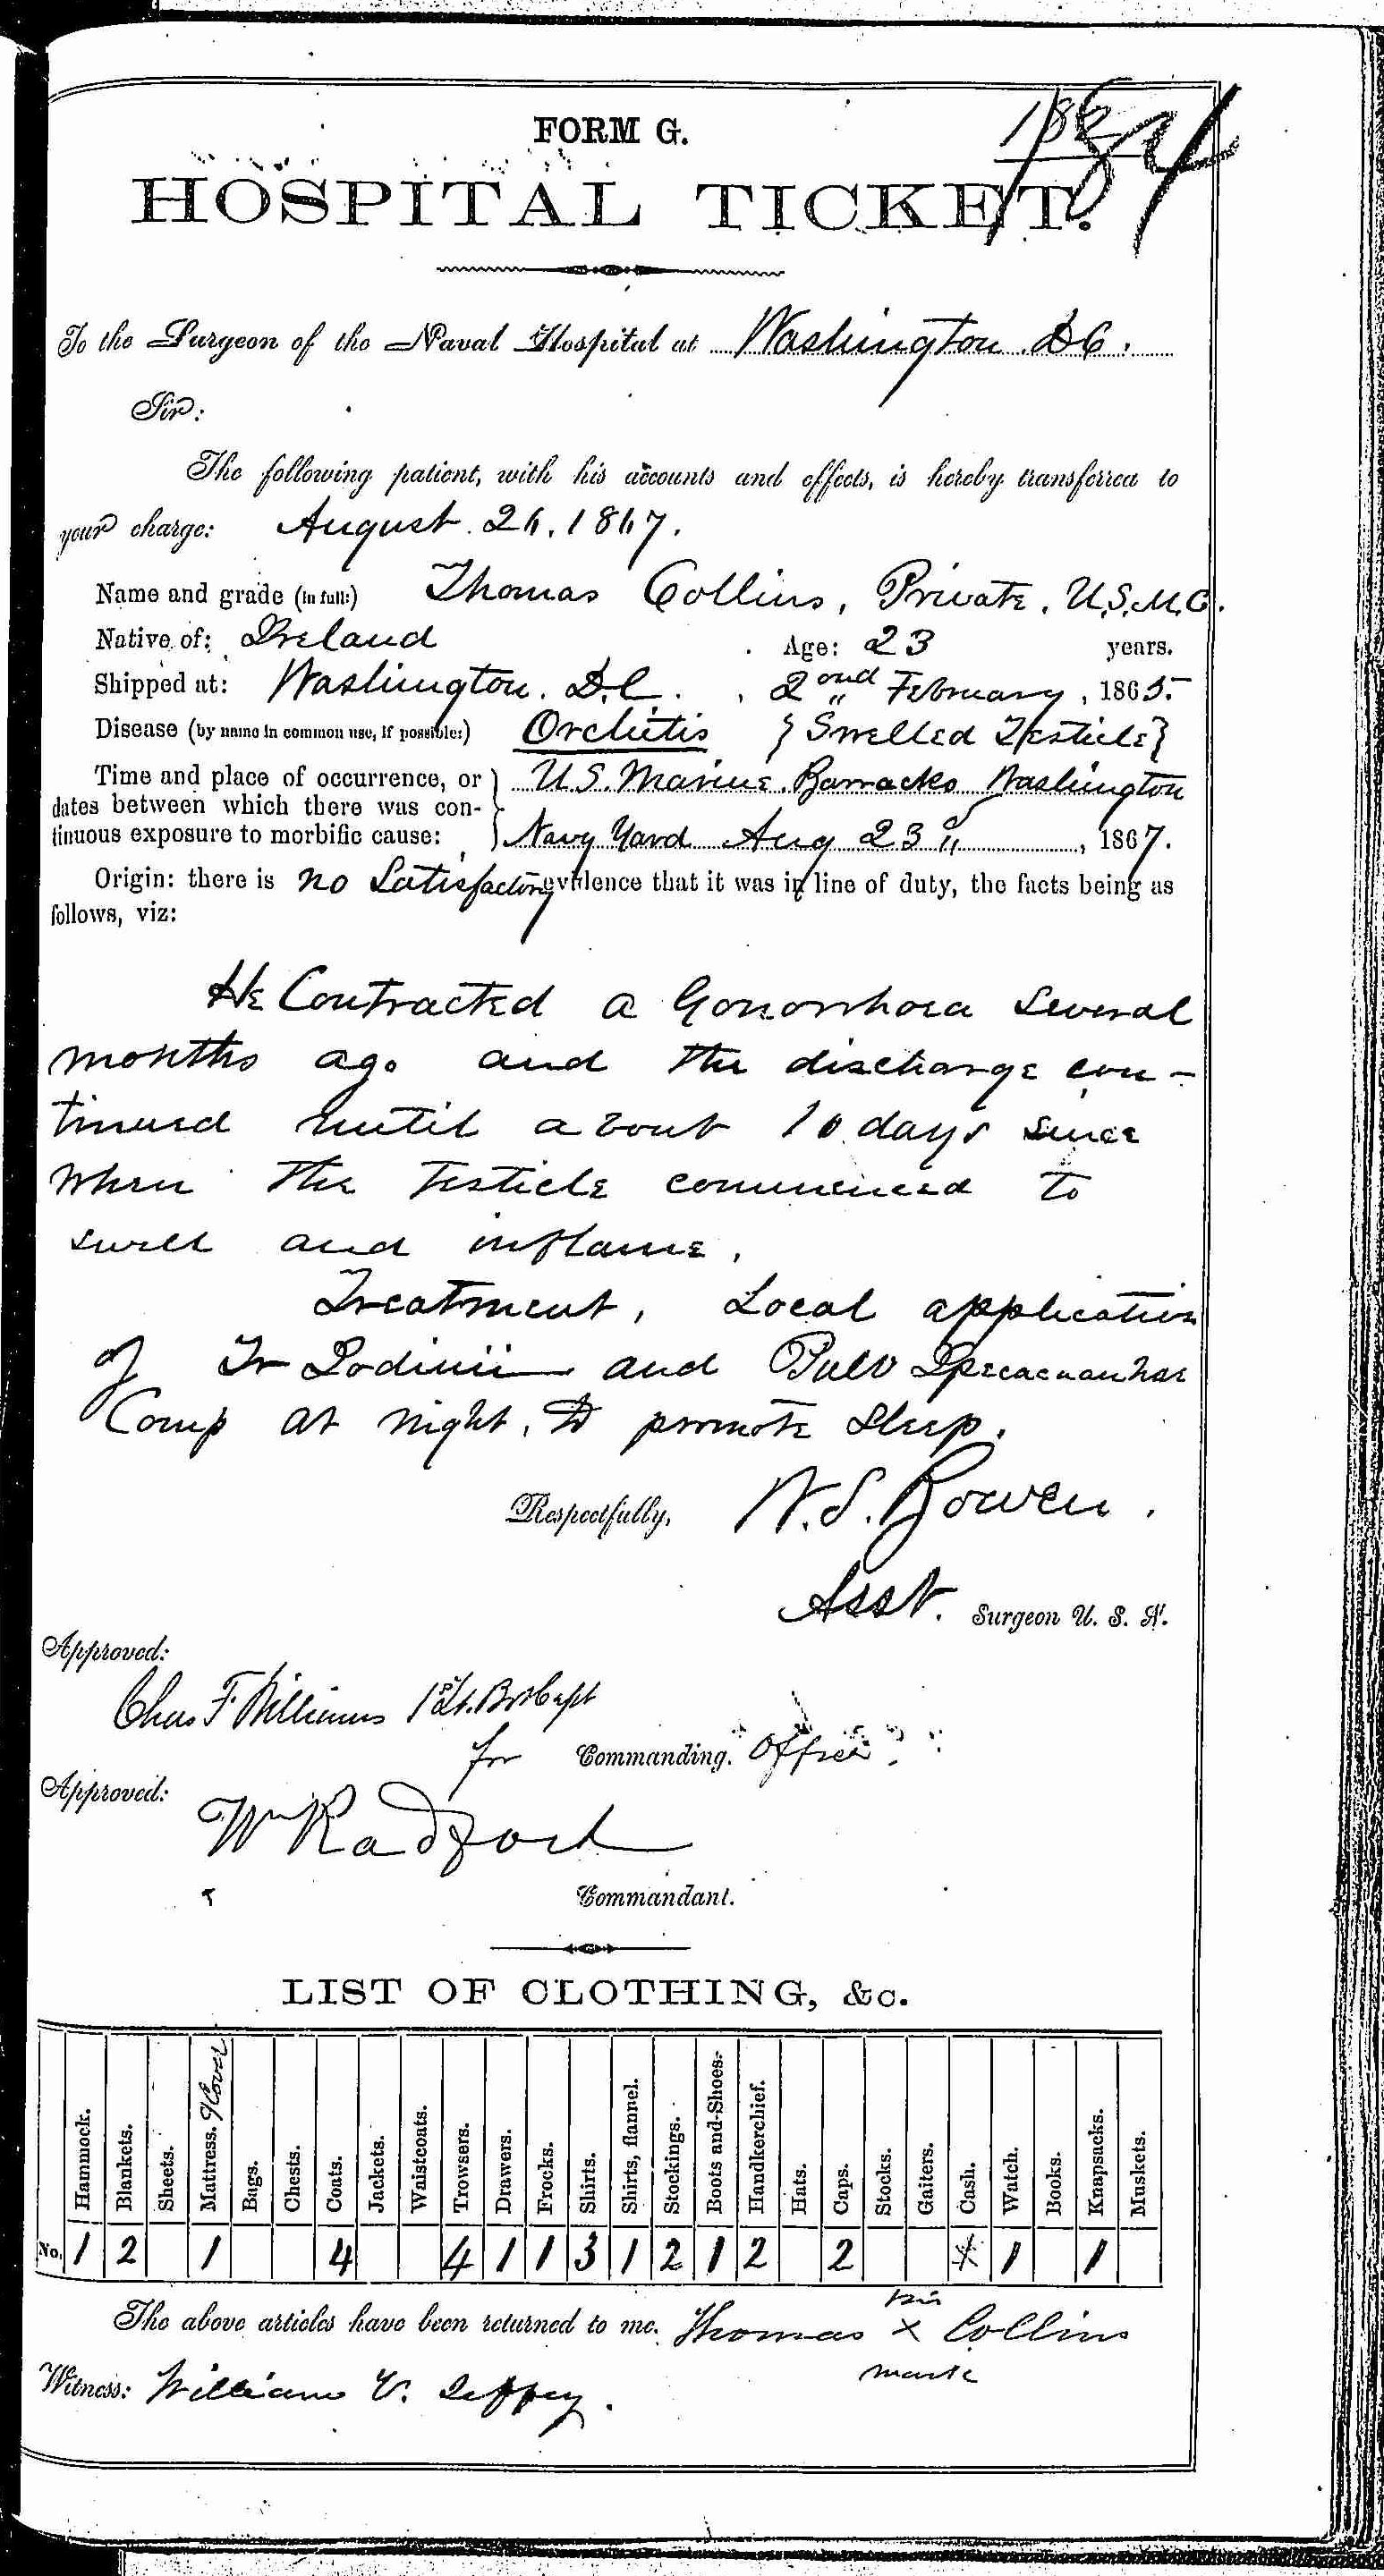 FORM G.
184
HOSPITAL TICKET.
To the Surgeon of the Naval Hospital at Washington. D.C.
Sir:
The following patient, with his accounts and effects, is hereby transferred to
your charge: August. 26. 1867.
Name and grade (in full:) Thomas Collins, Private, U.S.M.C.
Native of: Ireland Age: 23 years.
Shipped at: Washington. D.C. 2ond February, 1865.
Disease (by name in common use, if possible:) Orchitis {Swelled Testicle}
Time and place of occurrence, or U.S. Marine Barracks Washington
dates between which there was con-
tinuous exposure to morbific cause: Navy Yard Aug 23d, 1867.
Origin: there is no Satisfactory evidence that it was in line of duty, the facts being as
follows, viz:
He Contracted a Gonorrhoea Several
months ago and the discharge con-
tinued until about 10 days since
when the Testicle commenced to
swell and inflame.
Treatment, Local application
of Tr Iodinii and Pulv Ipecacuanhae
Comp at night, to promote sleep.
Respectfully, W.S. Bowen.
Asst. Surgeon U. S. N.
Approved:
Chas F. Williams 1st Lt. Bvt Capt
for Commanding. Officer.
Approved:
Wm Radford
Commandant.
LIST OF CLOTHING, &c.
Hammock. Blankets. Sheets. Mattress. & Cover Bags. Chests. Coats. Jackets. Waistcoats. Trowsers. Drawers. Frocks. Shirts. Shirts, flannel. Stockings. Boots and Shoes. Handkerchief. Hats. Caps. Stocks. Gaiters. Cash. Watch. Books. Knapsacks. Muskets.
No. 1 2 1 4 4 1 1 3 1 2 1 2 2 1 1
his
The above articles have been returned to me. Thomas x Collins
mark
Witness: William V.